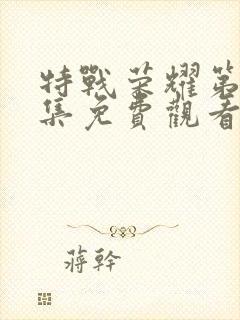 特戰榮耀第
集免費觀看
蔣幹